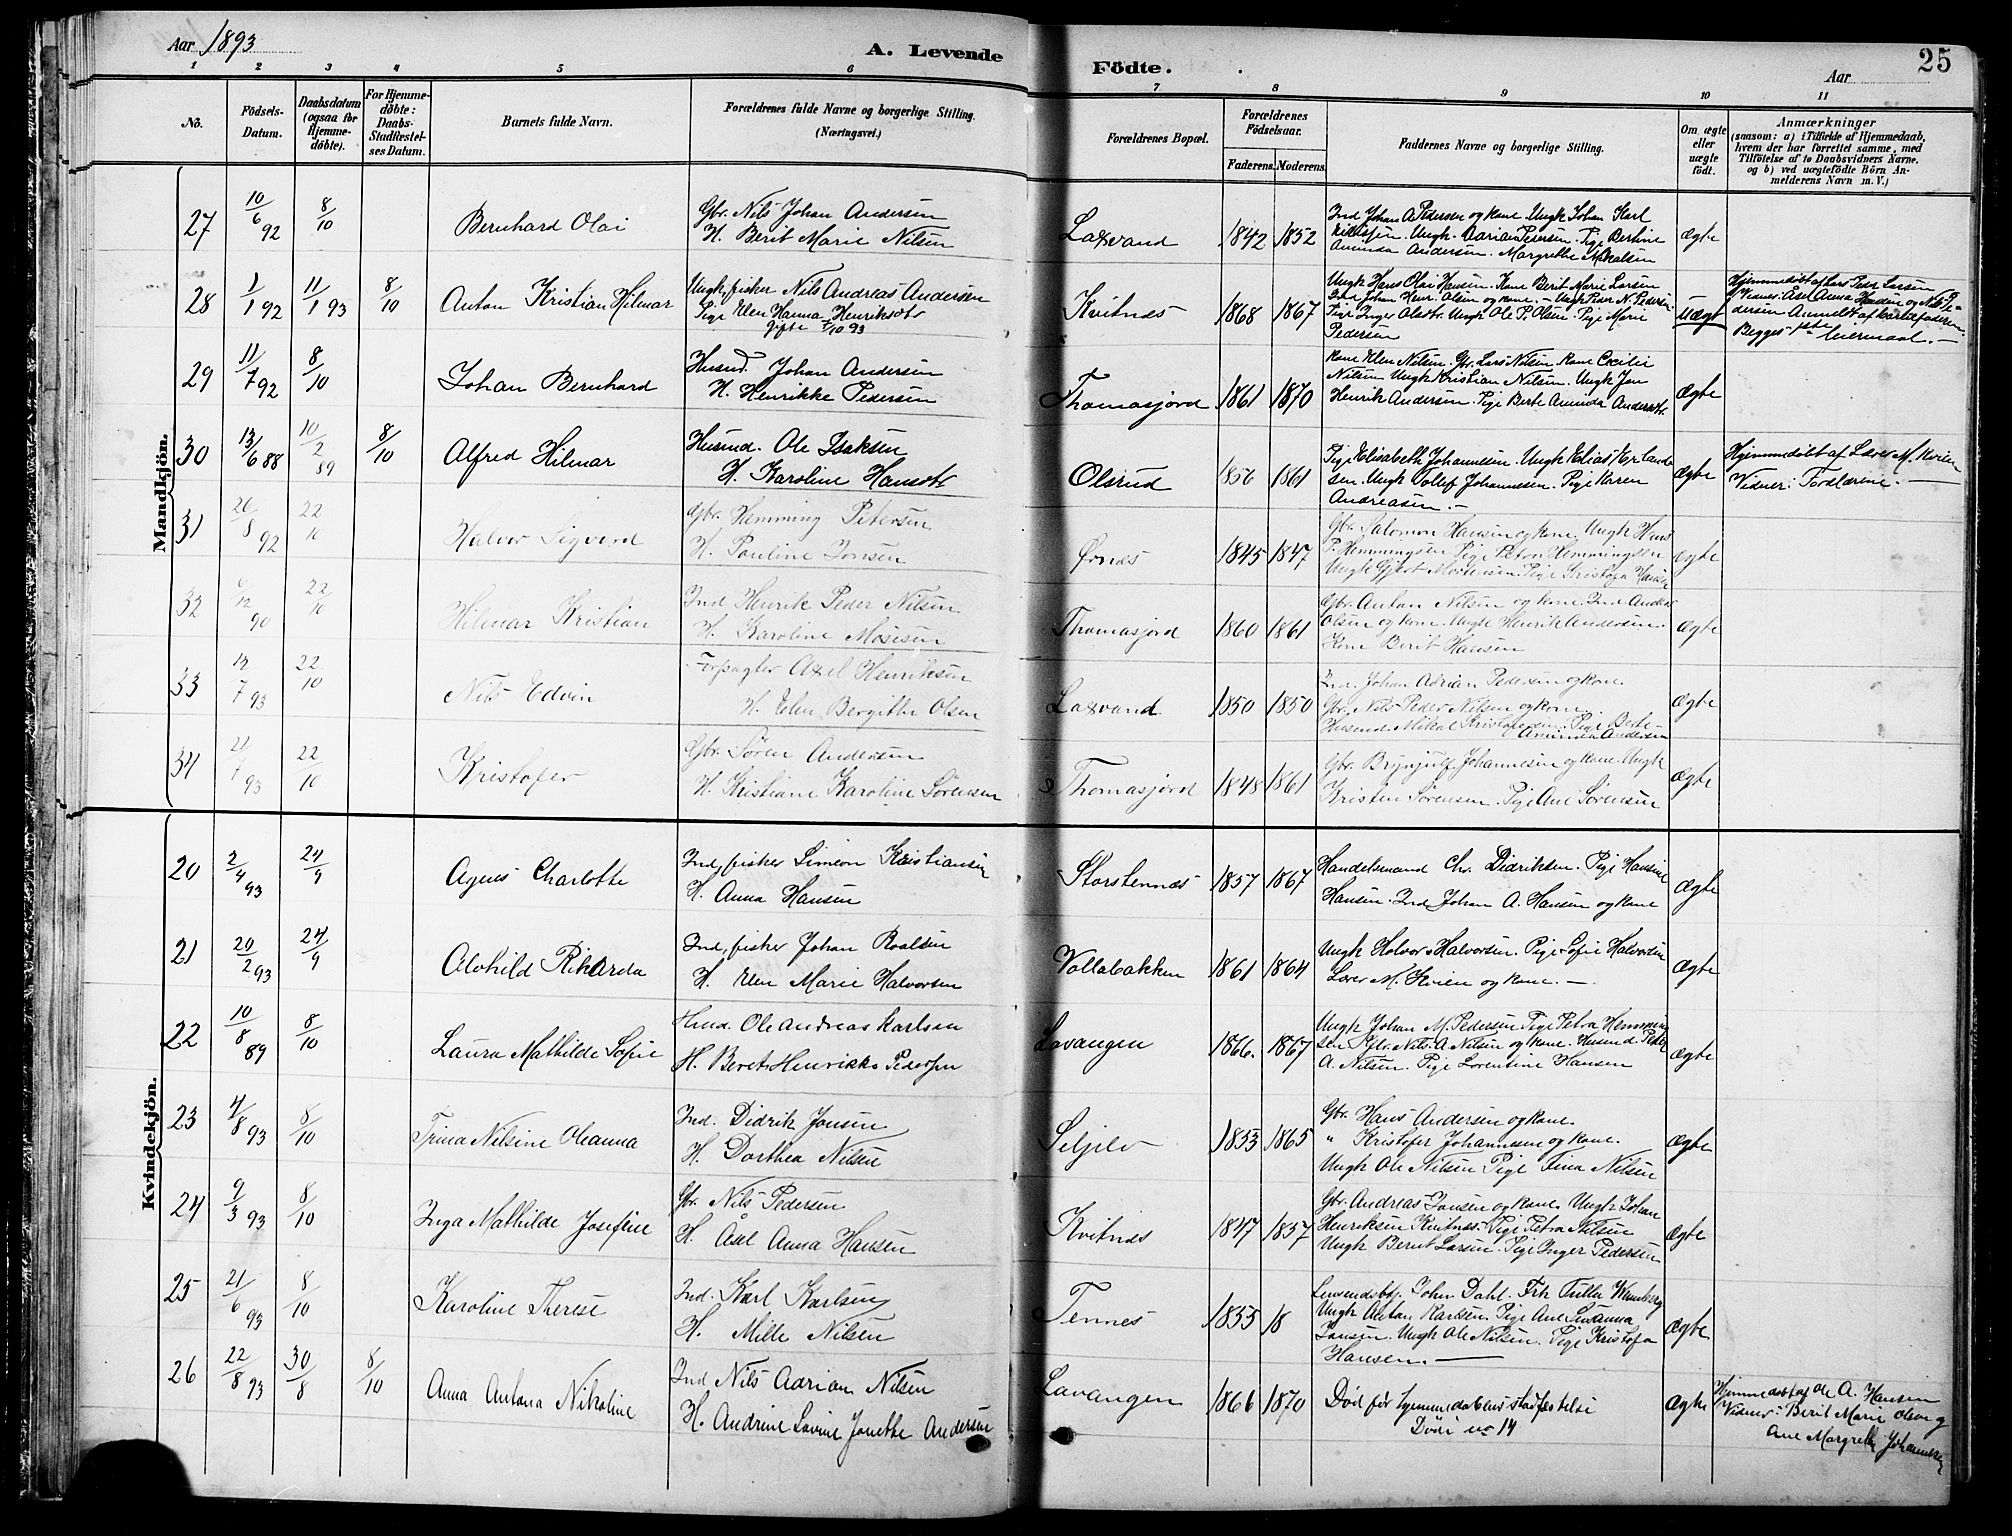 Aar 1893
A. Levende
Födte.
Aar
25
1 2 3 4 5 6 7 8 9 10 11
No.
Födsels-
Datum.
Daabsdatum
(ogsaa for
Hjemme-
döbte).
For Hjemme-
döbte:
Daabs-
Stadfæstel-
ses Datum.
Barnets fulde Navn.
Forældrenes fulde Navne og borgerlige Stilling.
(Næringsvei.)
Forældrenes Bopæl.
Forældrenes
Födselsaar.
Faderens. Moderens.
Faddernes Navne og borgerlige Stilling.
Om ægte
eller
uægte
födt.
Anmærkninger
(saasom: a) i Tilfælde af Hjemmedaab,
hvem der har forrettet samme, med
Tilföielse af to Daabsvidners Navne.
og b) ved uægtefödte Börn An-
melderens Navn m. V.)
Mandkjön.
27 10/6 92 8/10 Bernhard Olai
Gbr. Nils Johan Andersen
H. Berit Marie Nilsen
Laxvand 1842 1852
Ind Johan A Pedersen og kone. Ungk Johan Karl
Ungk. Adrian Pedersen. Pige Bertine
Aminda Andersen. Margrethe Mikalsen
Ægte
28 1/1 92 11/1 93 8/10 Anton Kristian Hilmar
Ungk. fisker Nils Andreas Andersen
Pige Elen Hanna Henriksdtr
gifte 7/10 93
Kvitnes 1868 1867
Ungk Hans Olai Hansen. Kone Berit Marie Larsen
Ind Johan Henr. Olsen og kone. – Ungk Peder N. Pedersen
Pige Inger Olsdtr. Ungk Ole P. Olsen. Pige Marie
Pedersen
uægt
Hjemmedöbt af Lars Peder Larsen
Vidner: Åsel Anna Hansen og Nils Pe-
dersen Anmeldt af barnefaderen.
Begges 1ste leiermaal. –
29 11/7 92 8/10 Johan Bernhard
Husmd Johan Andersen
H. Henrikke Pedersen
Thomasjord 1861 1870
Kone Elen Nilsen. Gbr. Lars Nilsen Kone Cecilie
Nilsen Ungk Kristian Nilsen. Ungk Jon
Henrik Andersen. Pige Berte Aminda Andersdtr
Ægte
30 13/6 88 10/2 89 8/10 Alfred Hilmar
Husmd. Ole Isaksen
H. Karoline Hansdtr
Olsrud 1856 1861
Pige Elisabeth Johannesen. Ungk Elias Erland-
sen. Ungk Tollef Johannesen. Pige Karen
Andreasen. –
Ægte
Hjemmedöbt af Lærer M. Kvien
Vidner: Forældrene. –
31 26/8 92 22/10 Halvor Sigvard
Gbr. Hemming Petersen
H. Pauline Jonsen
Ørnes 1845 1847
Gbr. Salomon Hansen og kone. Ungk Hans
P. Hemmingsen Pige Petra Hemmingsen
Ungk Gjert Mortensen. Pige Kristofa Hansen
Ægte
32 /12 90 22/10 Hilmar Kristian
Ind Henrik Peder Nilsen
H. Karoline Mosesen
Thomasjord 1860 1861
Gbr. Anton Nilsen og kone. Ind Anders
Olsen og kone. Ungk Henrik Andersen.
Kone Berit Hansen
Ægte
33 12/7 93 22/10 Nils Edvin
Forpagter Axel Henriksen
H. Elen Bergitte Olsen
Laxvand 1850 1850
Ind. Johan Adrian Pedersen og kone.
Gbr. Nils Peder Nilsen og kone.
Husmd Mikal Kristofersen. Pige Berte
Aminda Andersen
Ægte
34 21/7 93 22/10 Kristofer
Gbr. Sören Andersen
H. Kristiane Karoline Sörensen
Thomasjord 1848 1861
Gbr. Brynjulf Johannesen og kone. Ungk
Kristen Sörensen. Pige Ane Sörensen
Ægte
Kvindekjön.
20 2/4 93 24/9 Agnes Charlotte
Ind, fisker Simeon Kristiansen
H. Anna Hansen
Storstennæs 1857 1867
Handelsmand Chr. Didriksen. Pige Hansine
Hansen. Ind Johan A. Hansen og kone
Ægte
21 20/2 93 24/9 Olohild Rikarda
Ind, fisker Johan Roalsen
H. Elen Marie Halvorsen
Vollabakken 1861 1864
Ungk Holvor Halvorsen. Pige Sofie Halvorsen
Lærer M. Kvien og kone. –
Ægte
22 10/8 89 8/10 Laura Mathilde Sofie
Husd. Ole Andreas Karlsen
H. Beret Henrikke Pedersen
Lavangen 1866. 1867
Ungk Johan M. Pedersen Pige Petra Hemming-
sen Gbr. Nils A Nilsen og kone. Husmd Peder
A. Nilsen. Pige Lorentine Hansen
Ægte
23 4/8 93 8/10 Trina Nilsine Oleanna
Ind. Didrik Jonsen
H. Dorthea Nilsen
Seljelv 1853 1865
Gbr. Hans Andersen og kone.
" Kristofer Johannesen og kone.
Ungk Ole Nilsen Pige Tina Nilsen
Ægte
24 9/3 93 8/10 Inga Mathilde Josefine
Gbr. Nils Pedersen
H. Åsel Anna Hansen
Kvitnes 1847 1857
Gbr. Andreas Jonsen og kone. Ungk Johan
Henriksen Kvitnes. Pige Petra Nilsen
Ungk Bernt Larsen. Pige Inger Pedersen
Ægte
25 21/6 93 8/10 Karoline Therese
Ind. Karl Karlsen
H. Mille Nilsen
Tennes 1855 18
Lensmdsbtj. John Dahl. Frk Tulla Wennberg
Ungk Anton Karlsen. Pige Ane Susanna
Jonsen. Ungk Ole Nilsen. Pige Kristofa
Hansen. –
Ægte
26 22/8 93 30/8 8/10 Anna Antona Nikoline
Ind Nils Adrian Nilsen
H. Andrine Lovine Jonette Andersen
Lavangen 1866 1870
Död för hjemmedaabens stadfæstelse
Döde no 14
Ægte
Hjemmedöbt af Ole A. Hansen
Vidner: Berit Marie Olsen og
Ane Margrethe Johannesen